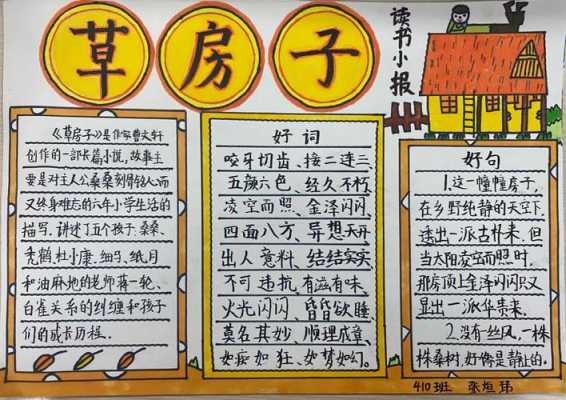 草房子
读书小报
《草房子》是作家曹文轩
创作的一部长篇小说,故事主
要是对主人公桑桑刻骨铭人而
又终身难忘的六年小学生活的
描写,讲述了五个孩子:桑桑、
秃鹤、杜小康、细马、纸月
和油麻地的老师蒋一轮、
白雀关系的纠缠和孩子
们的成长历程。
好词
咬牙切齿、接二连三、
五颜六色、经久不朽、
凌空而照、金泽闪闪、
四面八方、异想天开、
出人意料、结结实实、
不可违抗、有滋有味、
火光闪闪、昏昏欲睡、
莫名其妙、顺理成章、
如痴如狂、如梦如幻。
好句
1.这一幢幢房子,
在乡野纯静的天空下,
透出一派古朴来。但
当太阳凌空而照时,
那房顶上金泽闪闪,又
显出一派华贵来。
2.没有丝风,一株
株桑树,好像是静止的。
410班 张烜玮